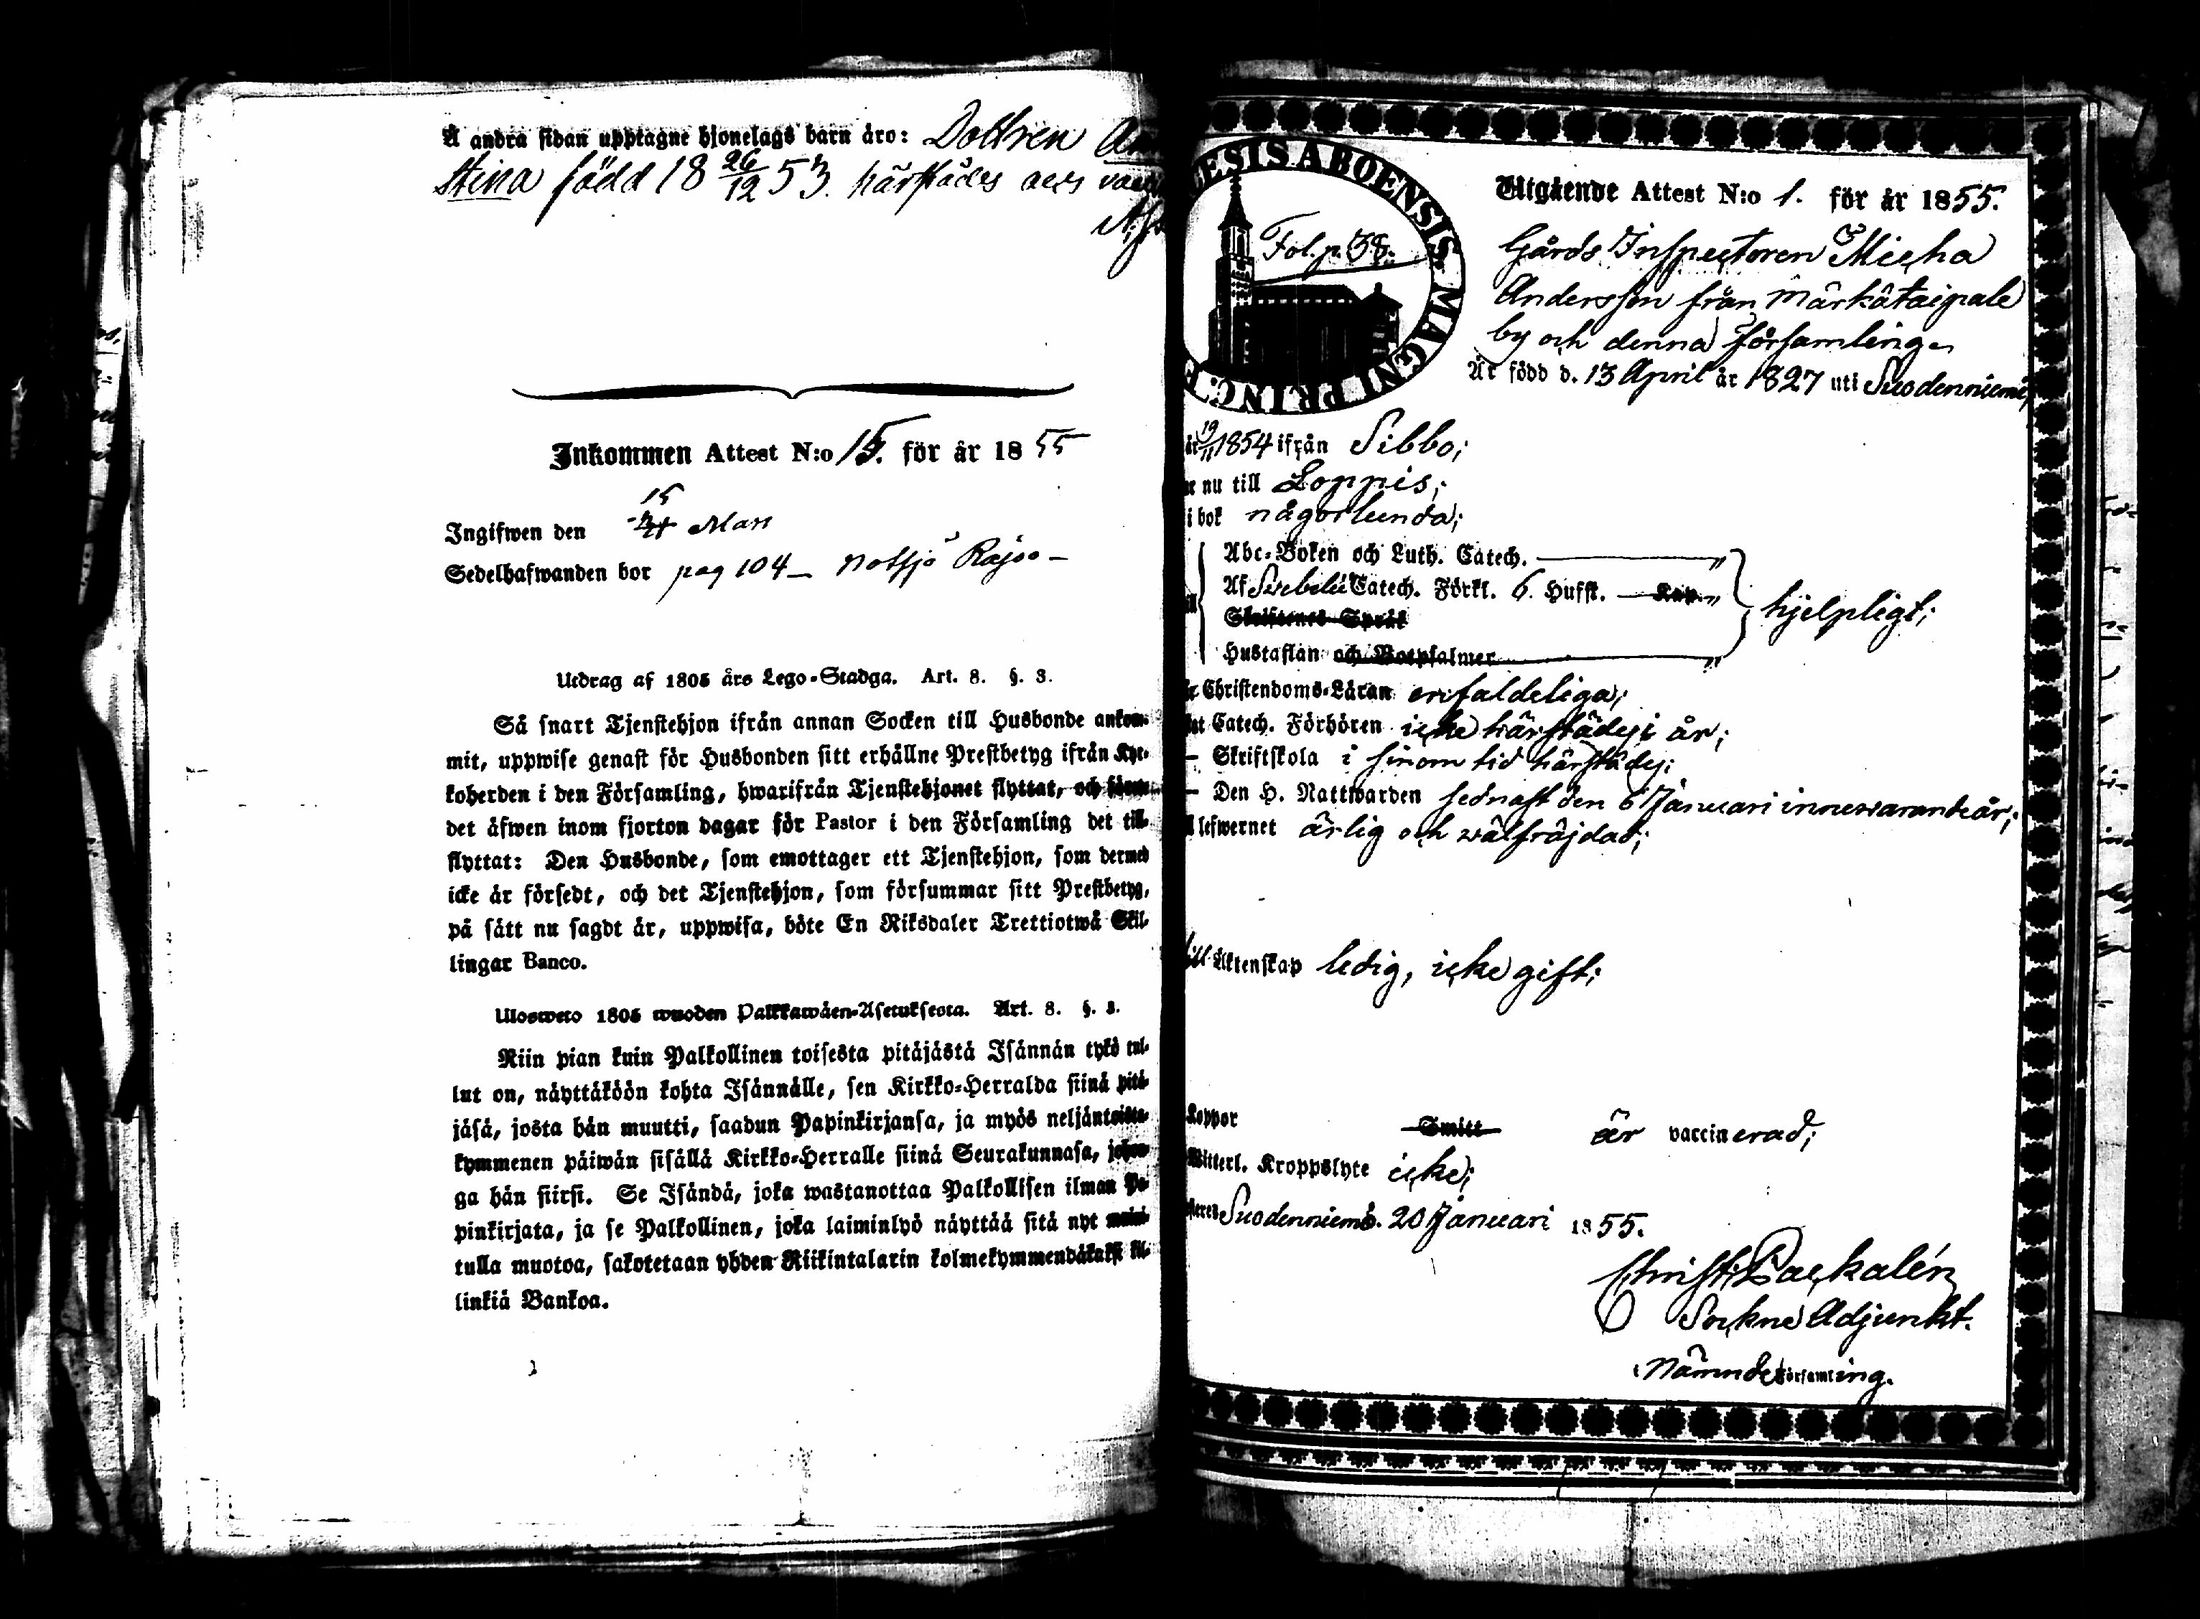 Å andra sidan upptagne hjonelags barn äro: Dottren
Stina född 18 26/12 53. härstädes
Inkommen Attest N:o 15. för år 1855
15
Ingifwen den Mars
Sedelhafwanden bor pag 104 –
Utdrag af 1805 års Lego-Stadga. Art. 8. §. 3.
Så snart Tjenstehjon ifrån annan Socken till Husbonde ankom-
mit, uppwise genast för Husbonden sitt erhållne Prestbetyg ifrån Kyr-
koherden i den Församling, hwarifrån Tjenstehjonet flyttat, och
det äfwen inom fjorton dagar för Pastor i den Församling det till-
flyttat: Den Husbonde, som emottager ett Tjenstehjon, som dermed
icke är försedt, och det Tjenstehjon, som försummar sitt Prestbetyg,
på sätt nu sagdt är, uppwisa, böte En Riksdaler Trettiotwå Skil-
lingar Banco.
Ulosweto 1805 wuoden Palkkawäen-Asetuksesta. Art. 8. §. 3.
Niin pian kuin Palkollinen toisesta pitäjästä Isännän tykö tul-
lut on, näyttäköön kohta Isännälle, sen Kirkko-Herralda siinä pitä-
jäsä, josta hän muutti, saadun Papinkirjansa, ja myös neljäntoista-
kymmenen päiwän sisällä Kirkko-Herralle siinä Seurakunnasa, johon-
ga hän siirsi. Se Isändä, joka wastanottaa Palkollisen ilman Pa-
pinkirjata, ja se Palkollinen, joka laiminlyö näyttää sitä nyt maini-
tulla muotoa, sakotetaan yhden Riikintalarin kolmekymmendäkaksi kil-
linkiä Bankoa.
ESIS ABOENSIS MAGNI PRINC. F
Fol. p. 38.
Utgående Attest N:o 1. för år 1855.
Gårds Inspectoren Micha
Andersson från Märkätaipale
by och denna församling.
Är född d. 13 April år 1827 uti Suodenniemi,
år 19/11 1854 ifrån Sibbo;
nu till Loppis;
i bok någorlunda;
Abc-Boken och Luth. Catech. — „
Af Svebelii Catech. Förkl. 6. Hufst. — Kap. „
Skriftenes Språk
Hustaflan och Botpsalmer „
hjelpligt;
Christendoms-Läran enfaldeliga;
Catech. Förhören icke härstädes i år;
— Skriftskola i sinom tid härstädes;
— Den H. Nattwarden sednast den 6 Januari innewarande år;
lefwernet ärlig och wälfräjdad;
till Äktenskap ledig, icke gift;
Koppor Smitt är vaccinerad;
Witterl. Kroppslyte icke;
Suodenniemi d. 20 Januari 1855.
Christ. Packalén
Sockne Adjunkt.
Nämnde församling.